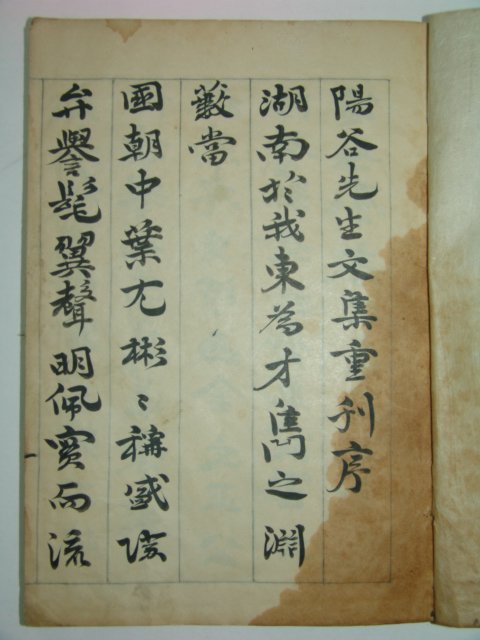 陽谷先生文集重刊序
湖南於我東爲才雋之淵
藪當
國朝中葉尤彬〻稱盛
弁譽髦翼聲明佩實而流